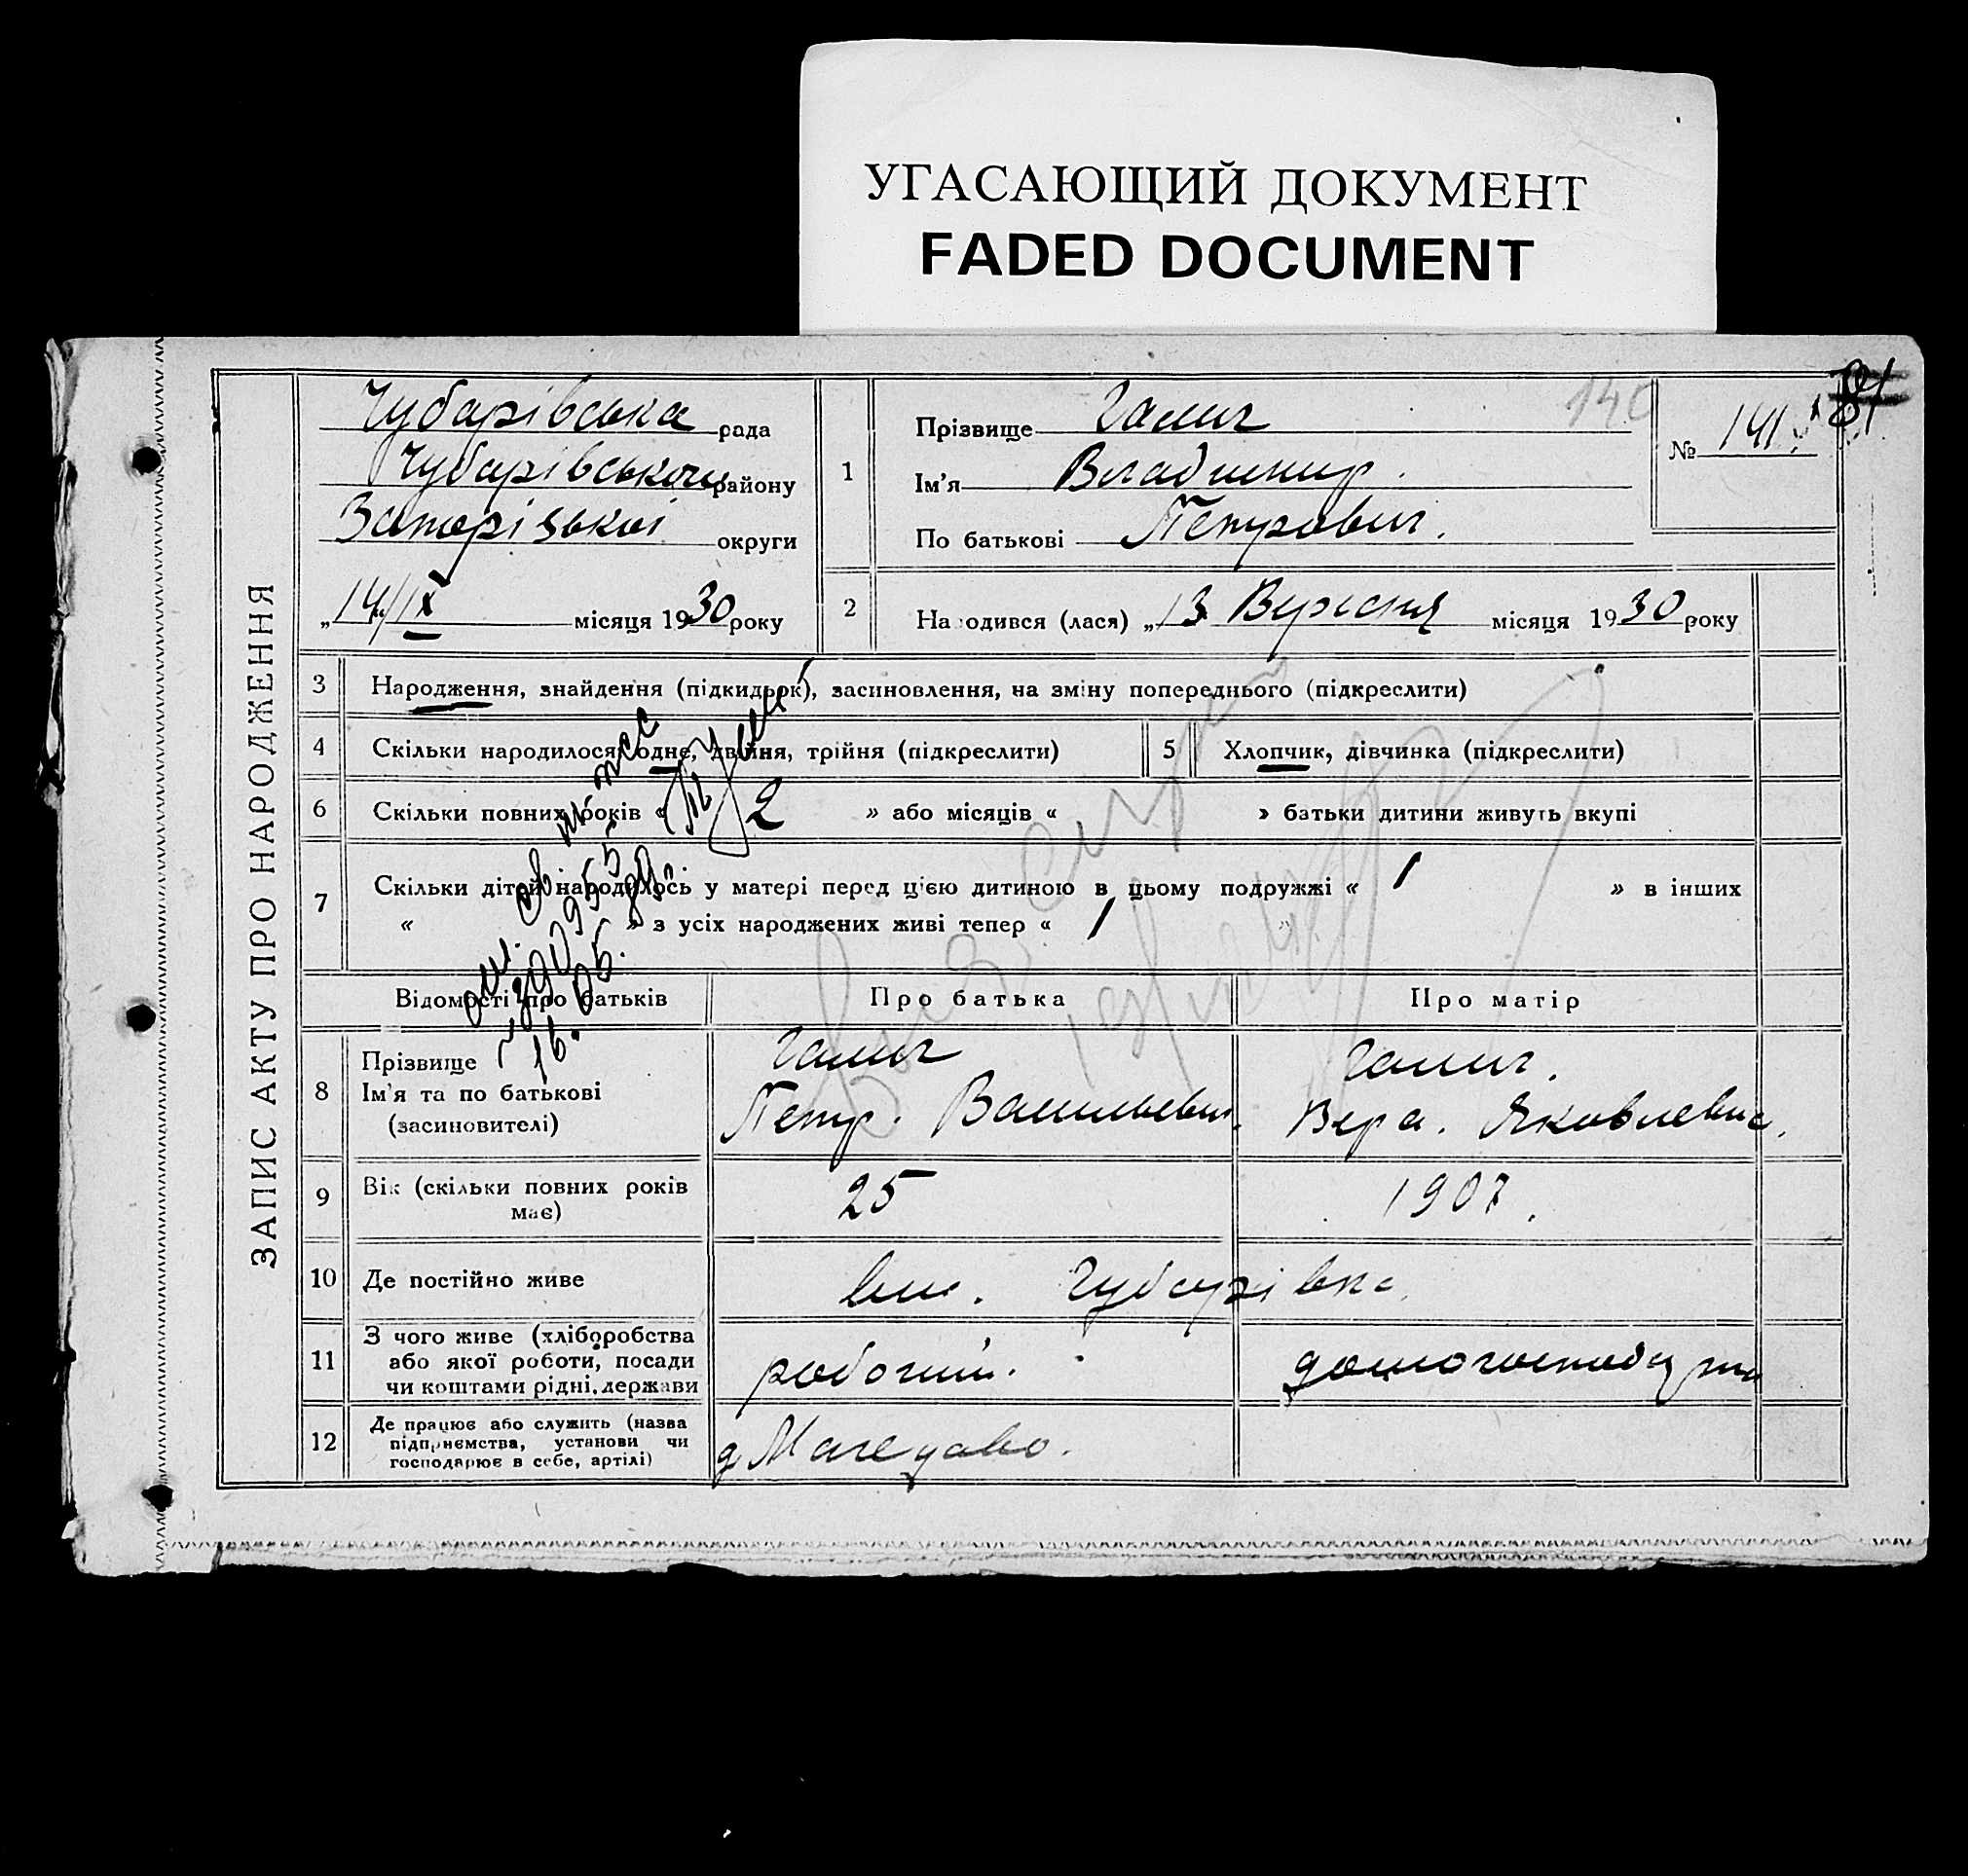 УГАСАЮЩИЙ ДОКУМЕНТ
FADED DOCUMENT
ЗАПИС АКТУ ПРО НАРОДЖЕННЯ
Чубарівська рада
Чубарівського району
Запорізької округи
„14/IX місяця 1930 року
1
Прізвище Галич
Ім'я Владимир.
По батькові Петрович.
140
№ 141
81
2
Народився (лася) „13 Вересня місяця 1930 року
3 Народження, знайдення (підкидьок), засиновлення, на зміну попереднього (підкреслити)
4 Скільки народилося: одне, двійня, трійня (підкреслити)
5 Хлопчик, дівчинка (підкреслити)
6 Скільки повних років « 2 » або місяців « » батьки дитини живуть вкупі
7 Скільки дітей народилось у матері перед цією дитиною в цьому подружжі « 1 » в інших
« » з усіх народжених живі тепер « 1 »
Відомості про батьків
Про батька
Про матір
8
Прізвище
Ім'я та по батькові
(засиновителі)
Галич
Петр. Васильевич.
Галич.
Вера. Яковлевна.
9 Вік (скільки повних років
має)
25
1907.
10 Де постійно живе
Чубарівка
11
З чого живе (хліборобства
або якої роботи, посади
чи коштами рідні, держави
робочий.
домогосподарка
12
Де працює або служить (назва
підприємства, установи чи
господарює в себе, артілі)